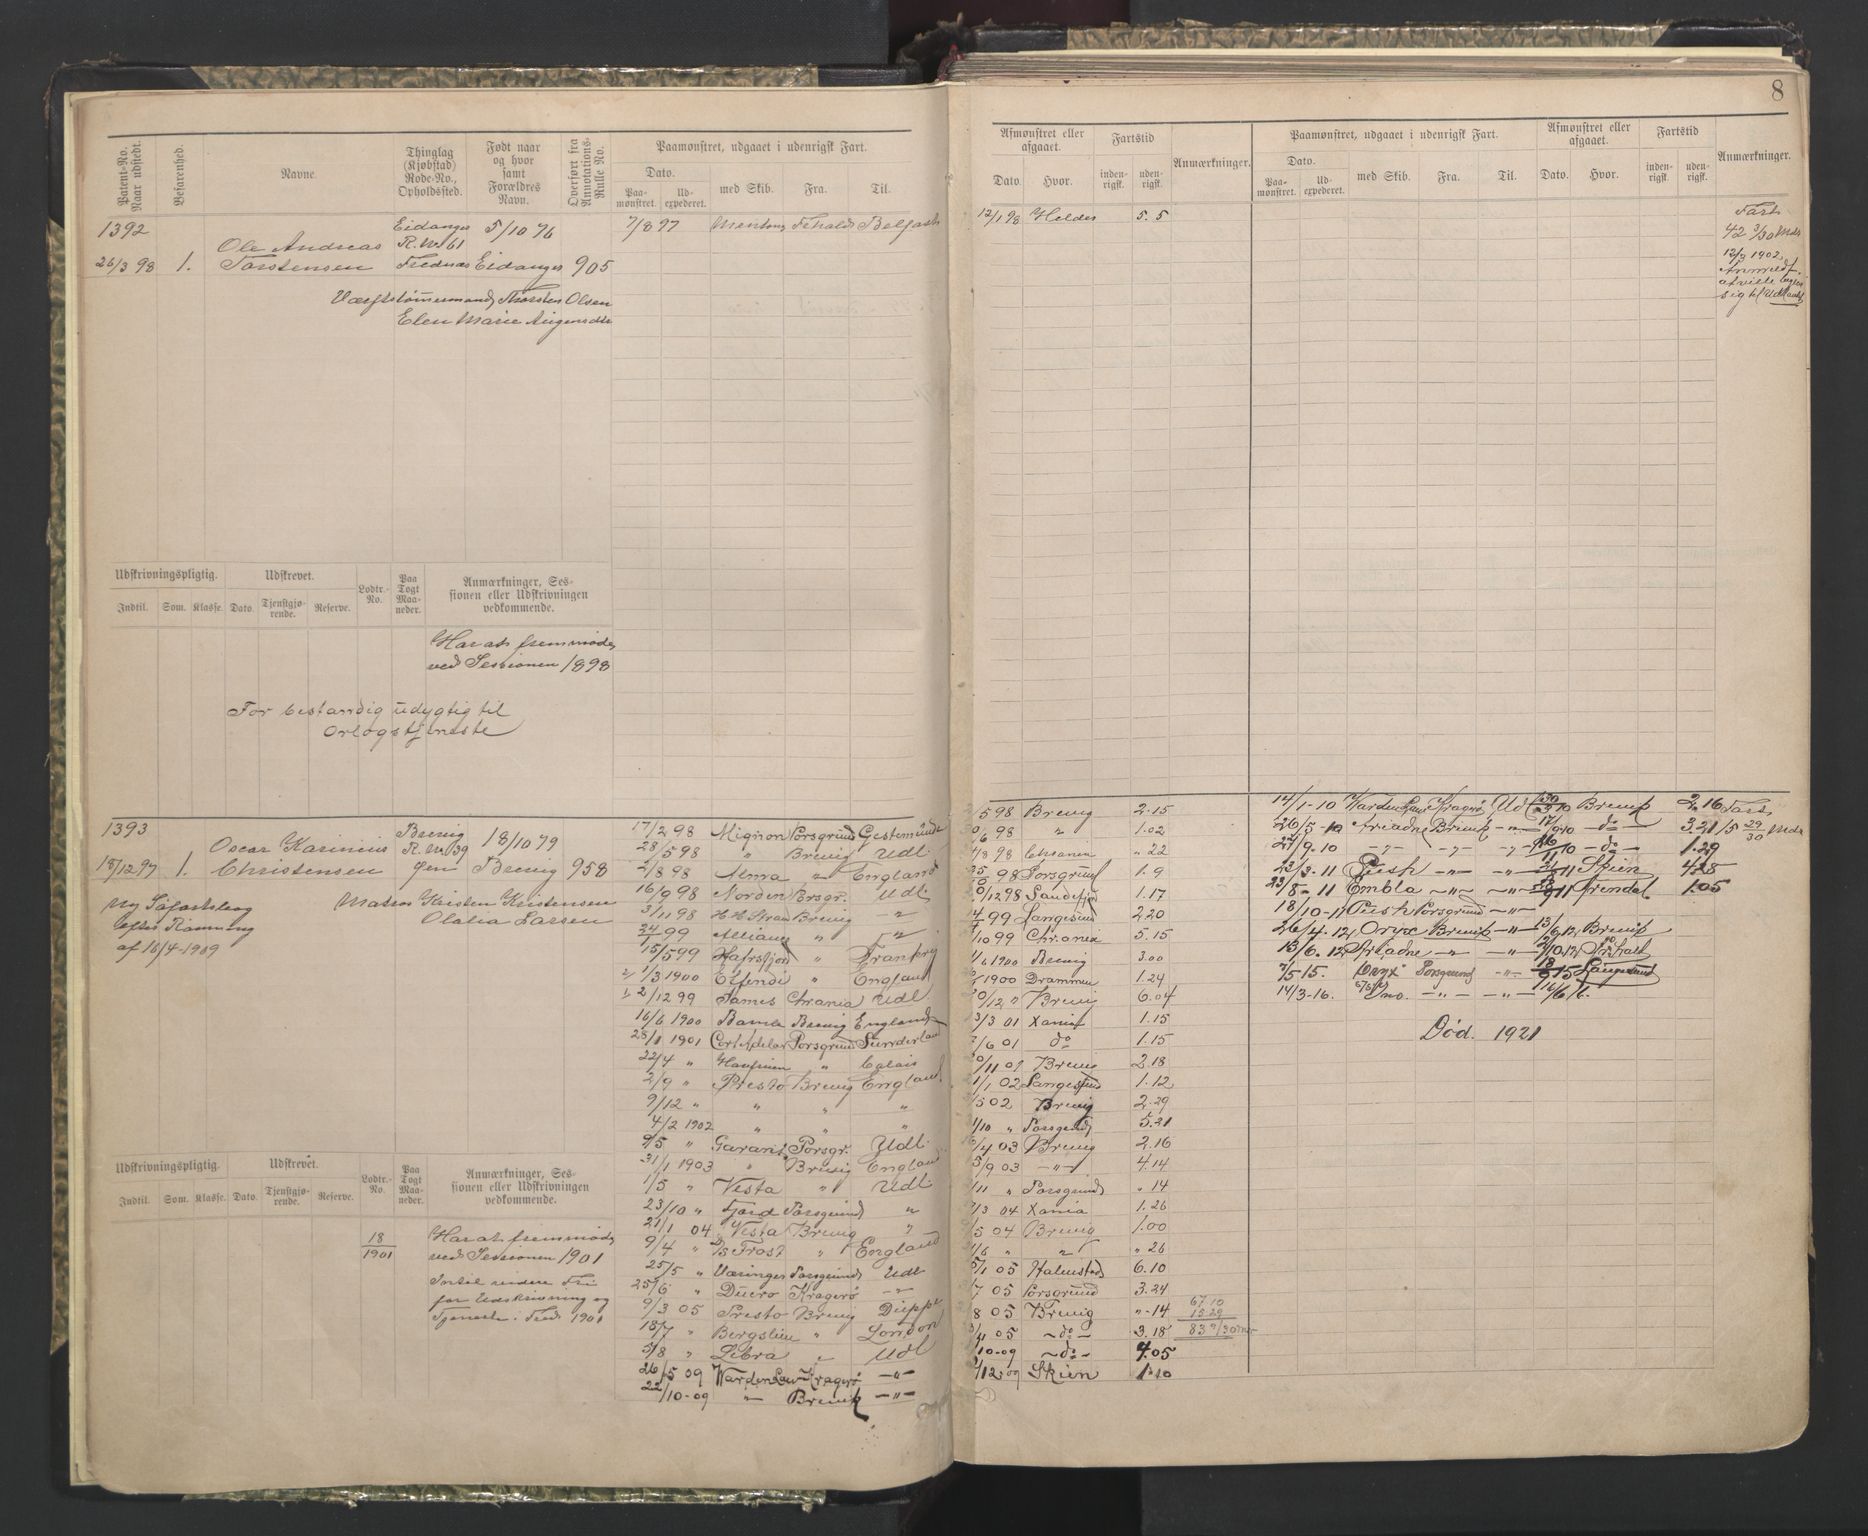 8
Patent-No. Naar udstedt.
Befarenhed.
Navne.
Thinglag (Kjøbstad) Rode-No., Opholdssted.
Født naar og hvor samt Forældres Navn.
Overført fra Annotations-Rulle No.
Paamønstret, udgaaet i udenrigsk Fart.
Dato.
Paa-mønstret. Ud-expederet. med Skib. Fra. Til.
Afmønstret eller afgaaet.
Fartstid
Anmærkninger.
Dato. Hvor. inden-rigsk. uden-rigsk.
Paamønstret, udgaaet i udenrigsk Fart.
Dato.
Paa-mønstret. Ud-expederet. med Skib. Fra. Til.
Afmønstret eller afgaaet.
Fartstid
Dato. Hvor. inden-rigsk. uden-rigsk.
Anmærkninger.
1392
26/3 98 1.
Ole Andreas
Torstensen
Eidanger
R. No 61
5/10 76
Eidanger 905
Thorsten Olsen
Elen Marie
7/8 97 Belfast
12/1 98 Helder 5.5
Fart
42 3/30 Mdr
12/3 1902
Udskrivningspligtig. Udskrevet. Lodtr.-No. Paa Togt Maa-neder. Anmærkninger, Ses-sionen eller Udskrivningen vedkommende.
Indtil. Som. Klasse. Dato. Tjenstgjø-rende. Reserve.
Har at fremmøde
ved Sessionen 1898
For bestandig udygtig til
Orlogstjeneste
1393
18/12 97 1.
Oscar Karinius
Christensen
Brevig
R. No 39
18/10 79
Brevig 958
Ny Søfartsbog
efter Rømning
af 16/4-1909
Matros Kristen Kristensen
Olalia Larsen
Udskrivningspligtig. Udskrevet. Lodtr.-No. Paa Togt Maa-neder. Anmærkninger, Ses-sionen eller Udskrivningen vedkommende.
Indtil. Som. Klasse. Dato. Tjenstgjø-rende. Reserve.
18
1901
Har at fremmøde
ved Sessionen 1901
Indtil videre Fri
for Udskrivning og
Tjeneste i Fred 1901
17/2 98 Mignon Porsgrund Gestemünde
28/5 98 " Brevig Udl.
2/8 98 Alma " England
16/9 98 Norden Porsgr. Udl.
3/11 98 Brevig -"-
24/ 99 Alliance " -"-
15/5 99 Hafrsfjord " Frankrig
1/3 1900 Elfende " England
2/12 99 James Chrania Udl
16/6 1900 Bamle Brevig England
28/1 1901 Cort Adelar Porsgrund Sunderland
22/4 " " Calais
2/9 " Presto Brevig England
9/12 " " " "
4/2 1902 " " "
9/5 " Garant Porsgr. Udl.
31/1 1903 " Brevig England
1/5 " Vesta " Udl.
23/10 " Fjord Porsgrund "
21/1 04 Vesta Brevig "
9/4 " D/S Frost " England
25/5 " Væringer Porsgrund Udl
25/6 " Duero Kragerø -"-
9/3 05 Presto Brevig Dieppe
18/7 " Bergslien " London
5/8 " Libra " Udl
26/5 09 Varden Kragerø -"-
22/10-09 " Brevik -"-
/5 98 Brevig 2.15
/6 98 " 1.02
/8 98 Chrania " 22
98 Porsgrund 1.9
/12 98 Sandefjord 1.17
99 Langesund 2.20
/10 99 Chrania 5.15
/6 1900 Brevig 3.00
1900 Drammen 1.24
/12 " Brevig 6.04
/3 01 Xania 1.15
/6 01 do 1.15
/11 01 Brevig 2.18
/1 02 Langesund 1.12
/5 02 Brevig 2.29
/10 " Porsgrund 5.21
/4 03 Brevig 2.16
/9 03 -"- 4.14
/11 " Porsgrund " 14
/3 04 Xania 1.26
/5 04 Brevig 1.00
/6 " " " 26
/1 05 Halmstad 6.10
/7 05 Porsgrund 3.24
/8 05 Brevig "-14
/11 05 -do- 3.18
/10-09 -do- 4.05
/12-09 Skien 1.10
67.10
15.29
83 9/30
14/1-10 Varden Kragerø Ud Brevik 2.16
26/5-10 Ariadne Brevik -"- -do- 3.21
27/9-10 -"- -"- -"- -do- 1.29
23/3-11 Pusk -"- -"- Skien
23/8-11 Embla -"- -"- Arendal 1.05
18/10-11 Pusk Porsgrund -"-
26/4-12 Oryx Brevik -"- 13/6 12 Brevik
13/6.12 Ariadne -"- -"-
/5 15. Oryx Porsgrund -"- 15 Langesund
14/3-16. Uno. -"- -"-
Fart
5 29/30 Mdr
Død. 1921